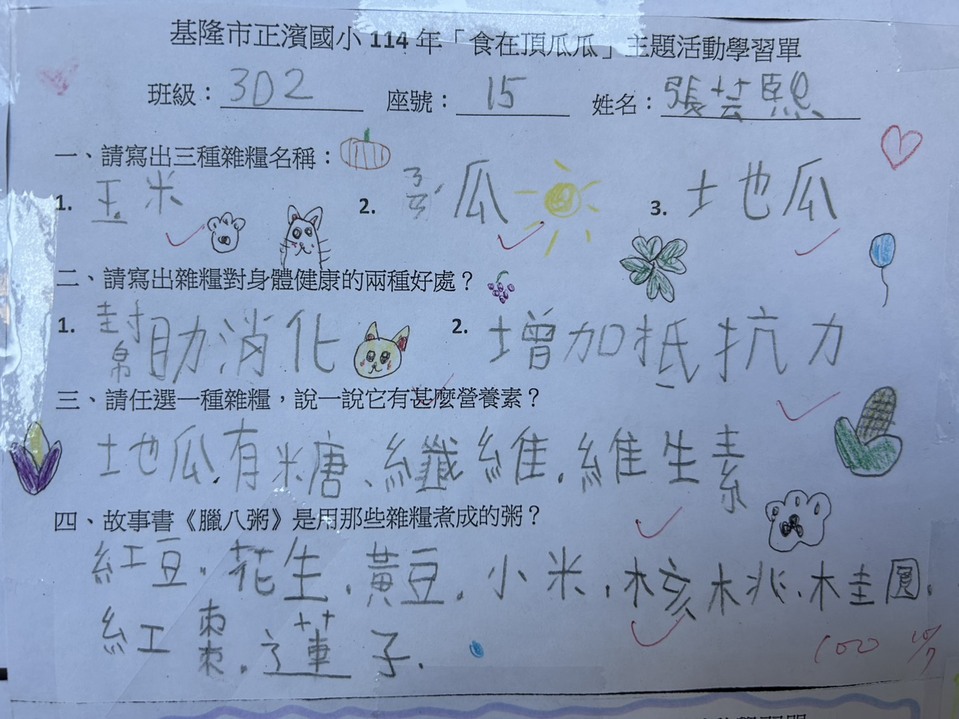 基隆市正濱國小 114 年「食在頂瓜瓜」主題活動學習單
班級：3D2 座號：15 姓名：張芸熙
一、請寫出三種雜糧名稱：
1. 玉米 2. ㄋㄢˊ瓜 3. 地瓜
二、請寫出雜糧對身體健康的兩種好處？
1. 幫助消化 2. 增加抵抗力
三、請任選一種雜糧，說一說它有甚麼營養素？
地瓜有米糖、纖維、維生素
四、故事書《臘八粥》是用那些雜糧煮成的粥？
紅豆、花生、黃豆、小米、核桃、桂圓、
紅棗、蓮子.
100 10/7